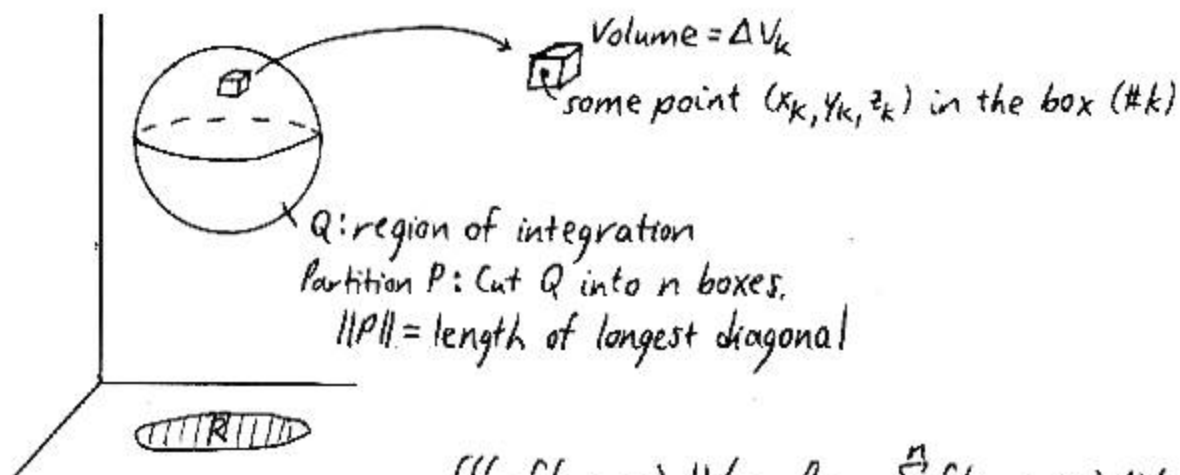 Volume = ΔVₖ
some point (xₖ, yₖ, zₖ) in the box (#k)
Q: region of integration
Partition P: Cut Q into n boxes.
||P|| = length of longest diagonal
R